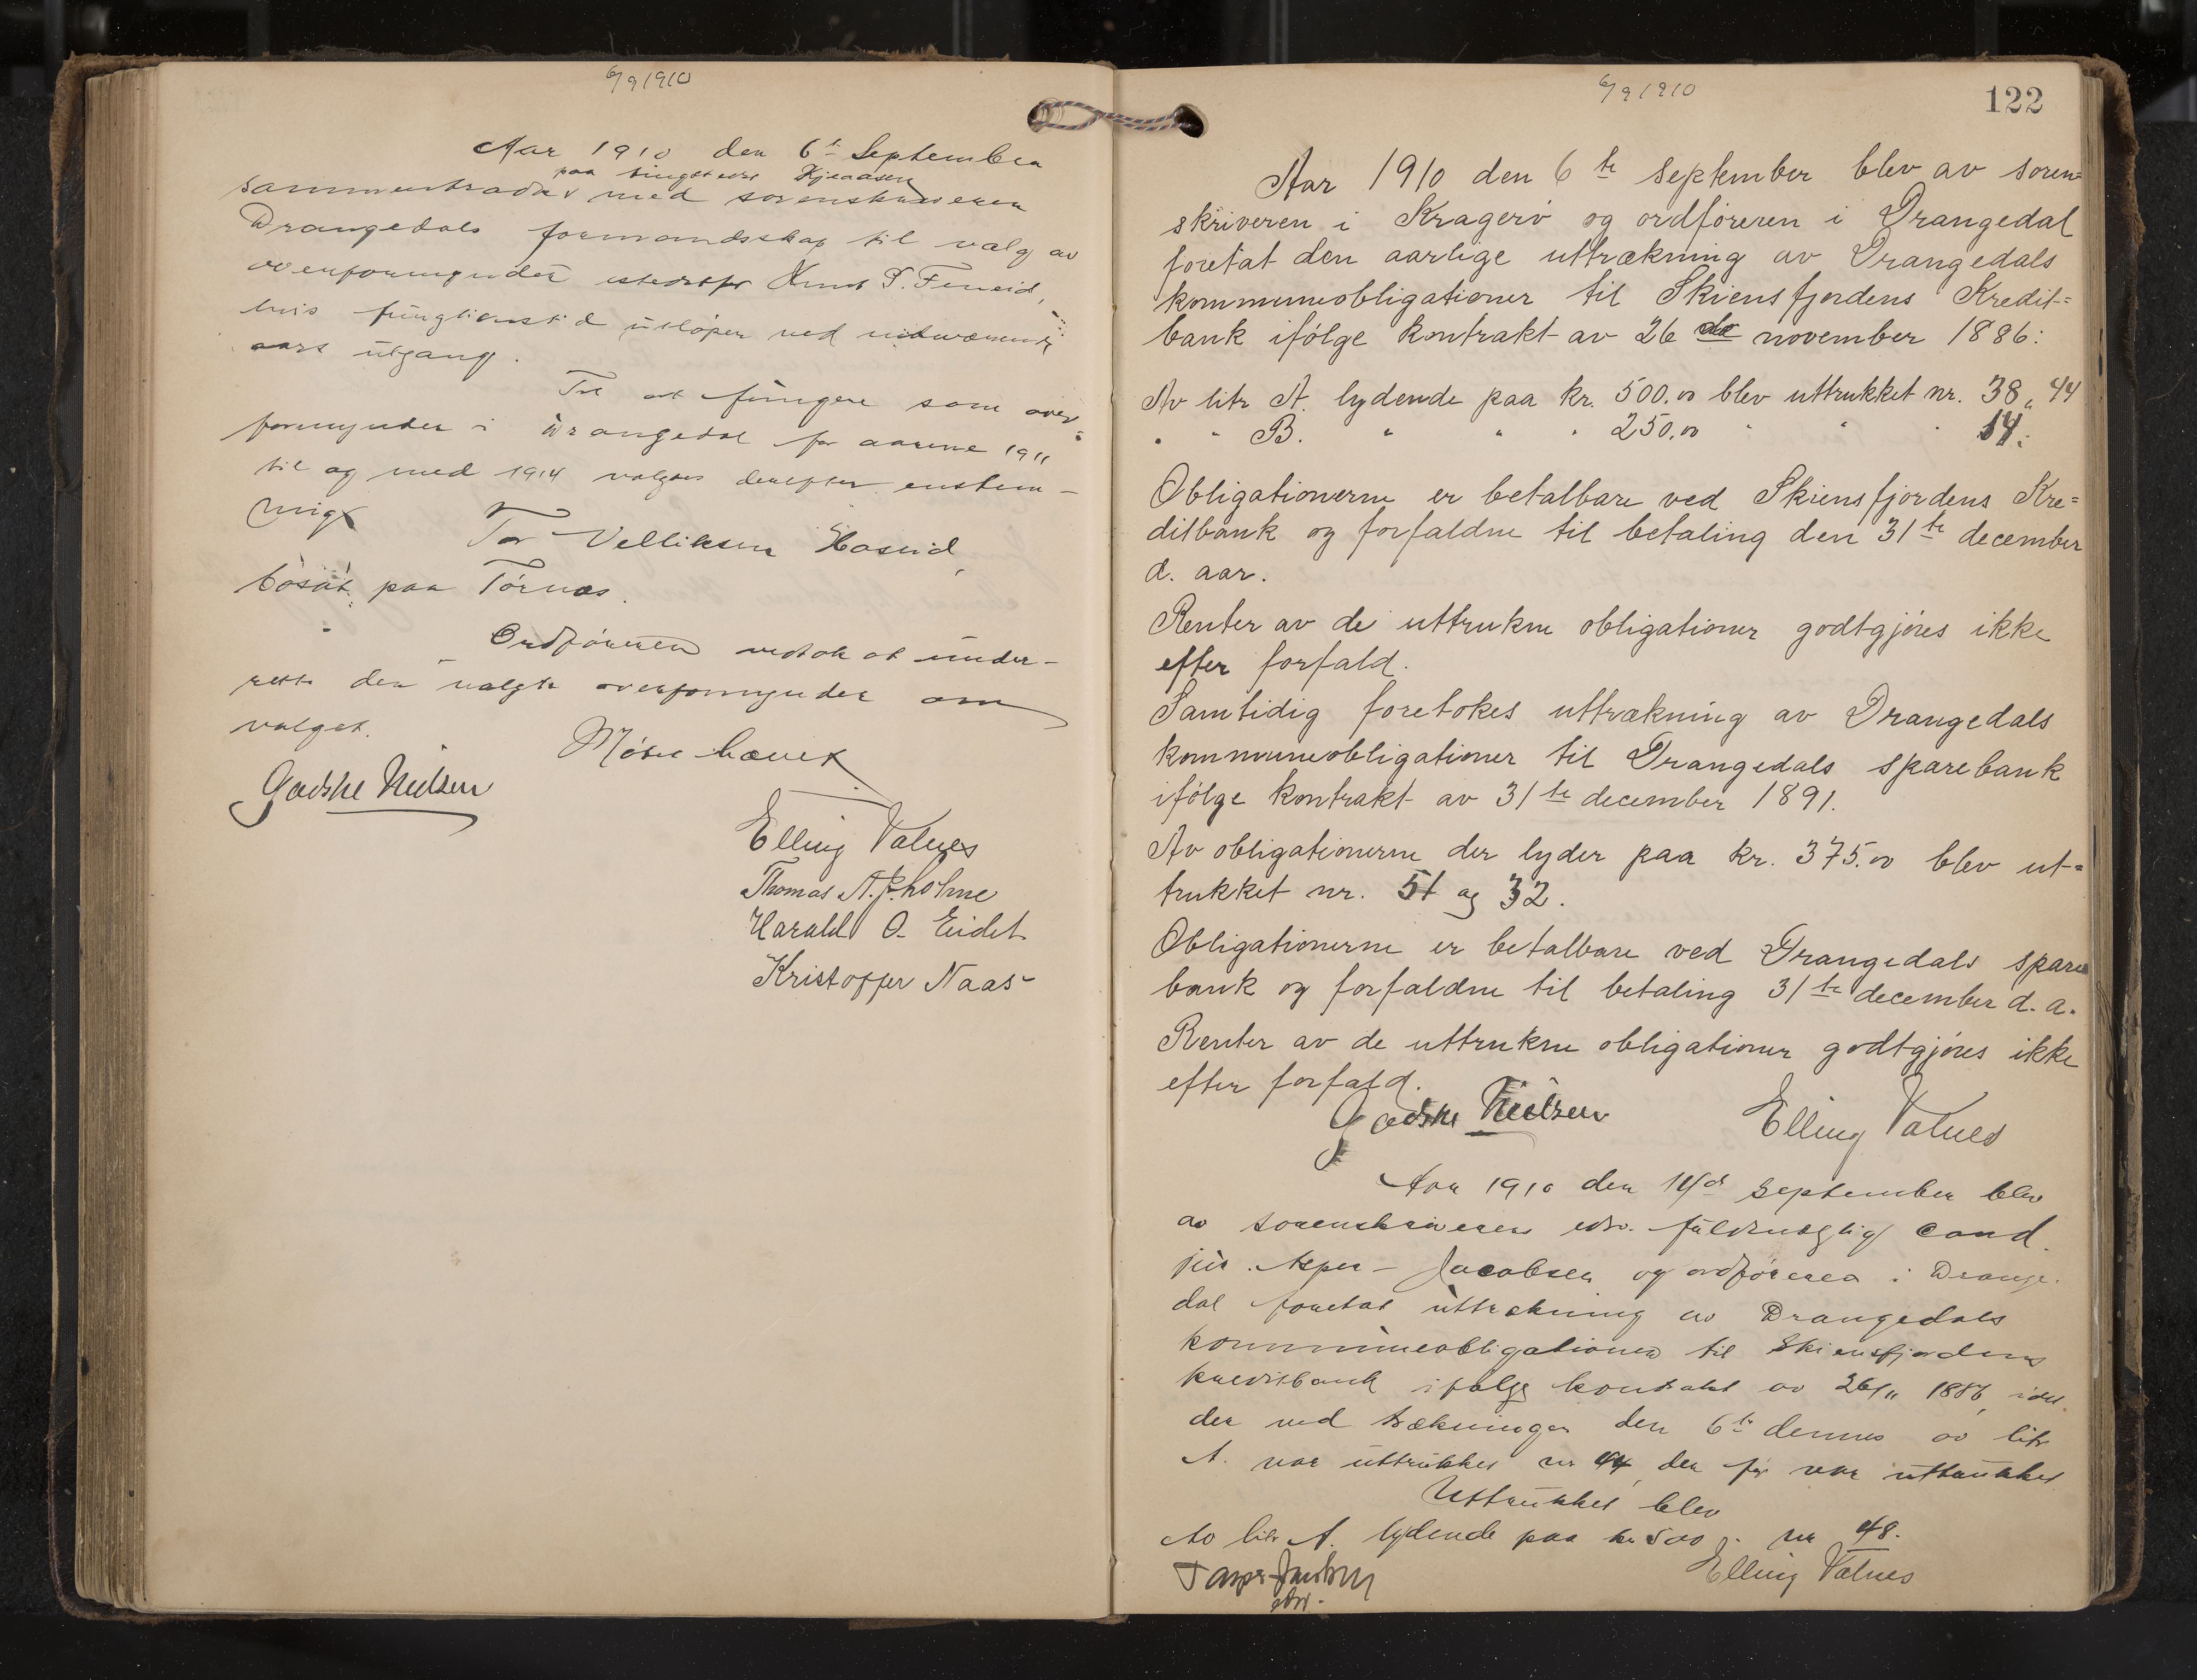 6/9 1910
Aar 1910 den 6te September
paa tingstedet Kjeaasen
sammentraadte med sorenskriveren
Drangedals formandsskap til valg av
overformynder istedetfor Knut P.
hvis fungtionstid utløper ved indværende
aars utgang.
Til at fungere som over-
formynder i Drangedal for aarene 1911
til og med 1914 valgtes derefter enstem-
mig
Tor Velliksen
bosat paa Tørnæs.
Ordføreren vedtok at under-
rette den valgte overformynder om
valget.
Møtet hævet
Gadske Nielsen
Elling Valnes
Thomas A.
Harald O. Eidet
Kristoffer Naas
6/9 1910
122
Aar 1910 den 6te september blev av soren=
skriveren i Kragerø og ordføreren i Drangedal
foretat den aarlige uttrækning av Drangedals
kommuneobligationer til Skiensfjordens Kredit=
bank ifølge kontrakt av 26de november 1886:
Av litr A. lydende paa kr. 500.00 blev uttrukket nr. 38, 44
" " B. " " " 250.00 " " " 14.
Obligationerne er betalbare ved Skiensfjordens Kre=
ditbank og forfaldne til betaling den 31te december
d. aar.
Renter av de uttrukne obligationer godtgjøres ikke
efter forfald.
Samtidig foretokes uttrækning av Drangedals
kommuneobligationer til Drangedals sparebank
ifølge kontrakt av 31te december 1891.
Av obligationerne der lyder paa kr. 375.00 blev ut=
trukket nr. 51 og 32.
Obligationerne er betalbare ved Drangedals spare
bank og forfaldne til betaling 31te december d. a.
Renter av de uttrukne obligationer godtgjøres ikke
efter forfald.
Gadske Nielsen Elling Valnes
Aar 1910 den september blev
av sorenskriveren edsv. fuldmægtig cand.
jur. Jacobsen og ordføreren i Drange-
dal foretat uttrækning av Drangedals
kommuneobligationer til Skiensfjordens
kreditbank ifølge kontrakt av 26/11 1886, idet
der ved trækningen den 6te dennes av litr
A. var uttrukket nr 44, der før var uttrukket
Uttrukket blev
Av litr A. lydende paa kr 500 nr 48.
Elling Valnes
edsv.